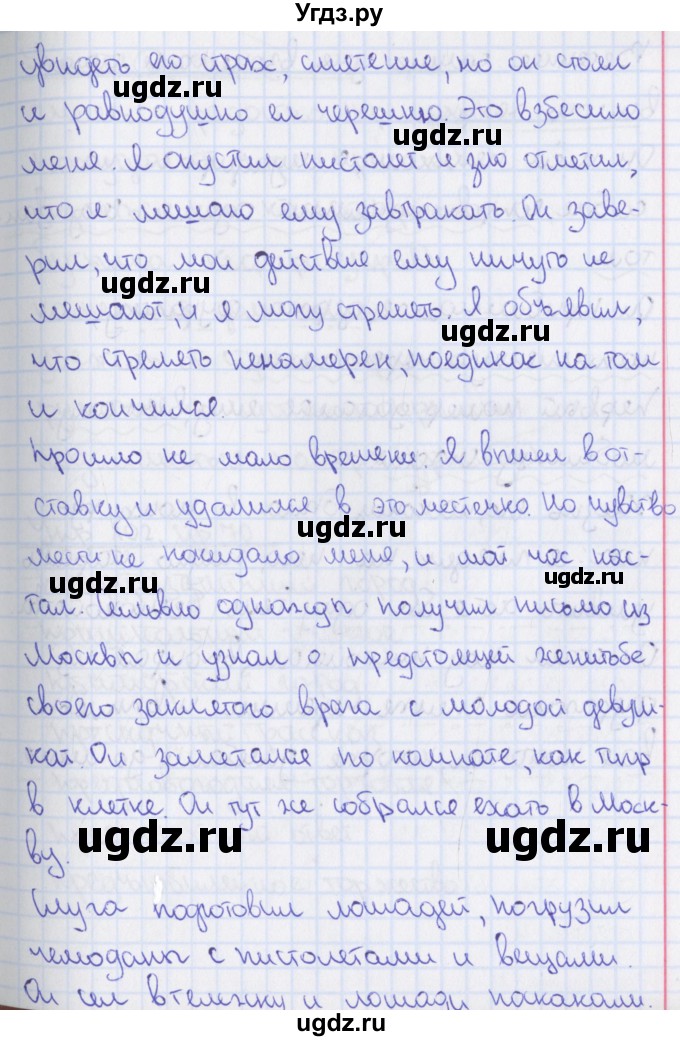 Угдз.ру
увидеть его страх, смятение, но он стоял
ugdz.ru
и равнодушно ел черешню. Это взбесило
ugdz.ru
меня. Я опустил пистолет и зло отметил,
что я мешаю ему завтракать. Он заве-
рил, что мои действие ему ничуть не
ugdz.ru
мешают, и я могу стрелять. Я объявил,
ugdz.ru
что стрелять ненамерен, поединок на том
и кончился.
Прошло не мало времени. Я вышел в от-
ставку и удалился в это местечко. Но чувство
ugdz.ru
мести не покидало меня, и мой час нас-
ugdz.ru
ugdz.ru
тал. Сильвио однажды получил письмо из
Москвы и узнал о предстоящей женитьбе
своего заклятого врага с молодой девуш-
кой. Он заметался по комнате, как тигр
в клетке. Он тут же собрался ехать в Моск-
ugdz.ru
ugdz.ru
ву.
Слуга подготовил лошадей, погрузил
чемоданы с пистолетами и вещами.
Он сел в тележку и лошади поскакали.
ugdz.ru